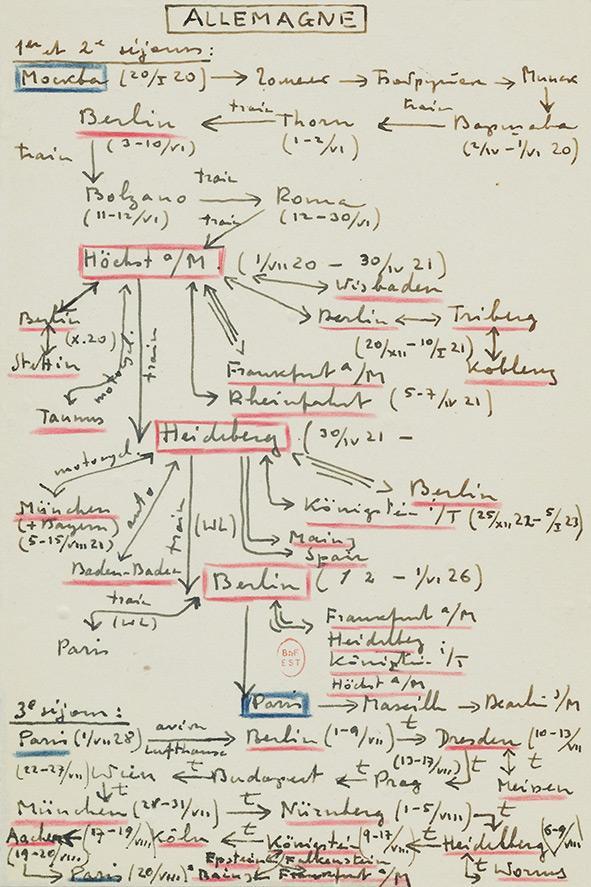 ALLEMAGNE
1er et 2e séjours :
Москва (20/I 20) → Гомель → Бобруйск → Минск
Berlin train Thorn train Варшава
(3-10/VI) (1-2/VI) (2/IV - 1/VI 20)
train
Bolzano train Roma
(11-12/VI) train (12-30/VI)
Höchst a/M (1/VII 20 - 30/IV 21)
Wisbaden
Berlin Berlin ↔ Triberg
(X.20) (20/XII - 10/I 21)
Stettin motocycl. train Frankfurt a/M Koblenz
Taunus Rheinfahrt (5-7/IV 21)
Heidelberg (30/IV 21 -
motocycl. Berlin
München Königstein i/T (25/XII 22 - 5/I 23)
(+ Bayern) auto train (WL)
(5-15/VIII 21) Mainz
Baden-Baden Spair
Berlin ( 2 - 1/VI 26)
train
(WL) Frankfurt a/M
Paris Heidelberg
BnF EST Königstein i/T
Höchst a/M
Paris → Marseille → Berlin
3e séjour :
Paris (1/VII 28) avion Lufthansa Berlin (1-9/VII) t Dresden (10-13/VII
(22-27/VII) Wien t Budapest t Prag (13-17/VII) t t Meissen
München (28-31/VII) t Nürnberg (1-5/VIII) t
Aachen (17-19/VIII) Köln t Königstein (9-17/VIII) t Heidelberg (6-9/VIII)
(19-20/VIII) Epstein Falkenstein t Worms
Paris (20/VIII) Frankfurt a/M